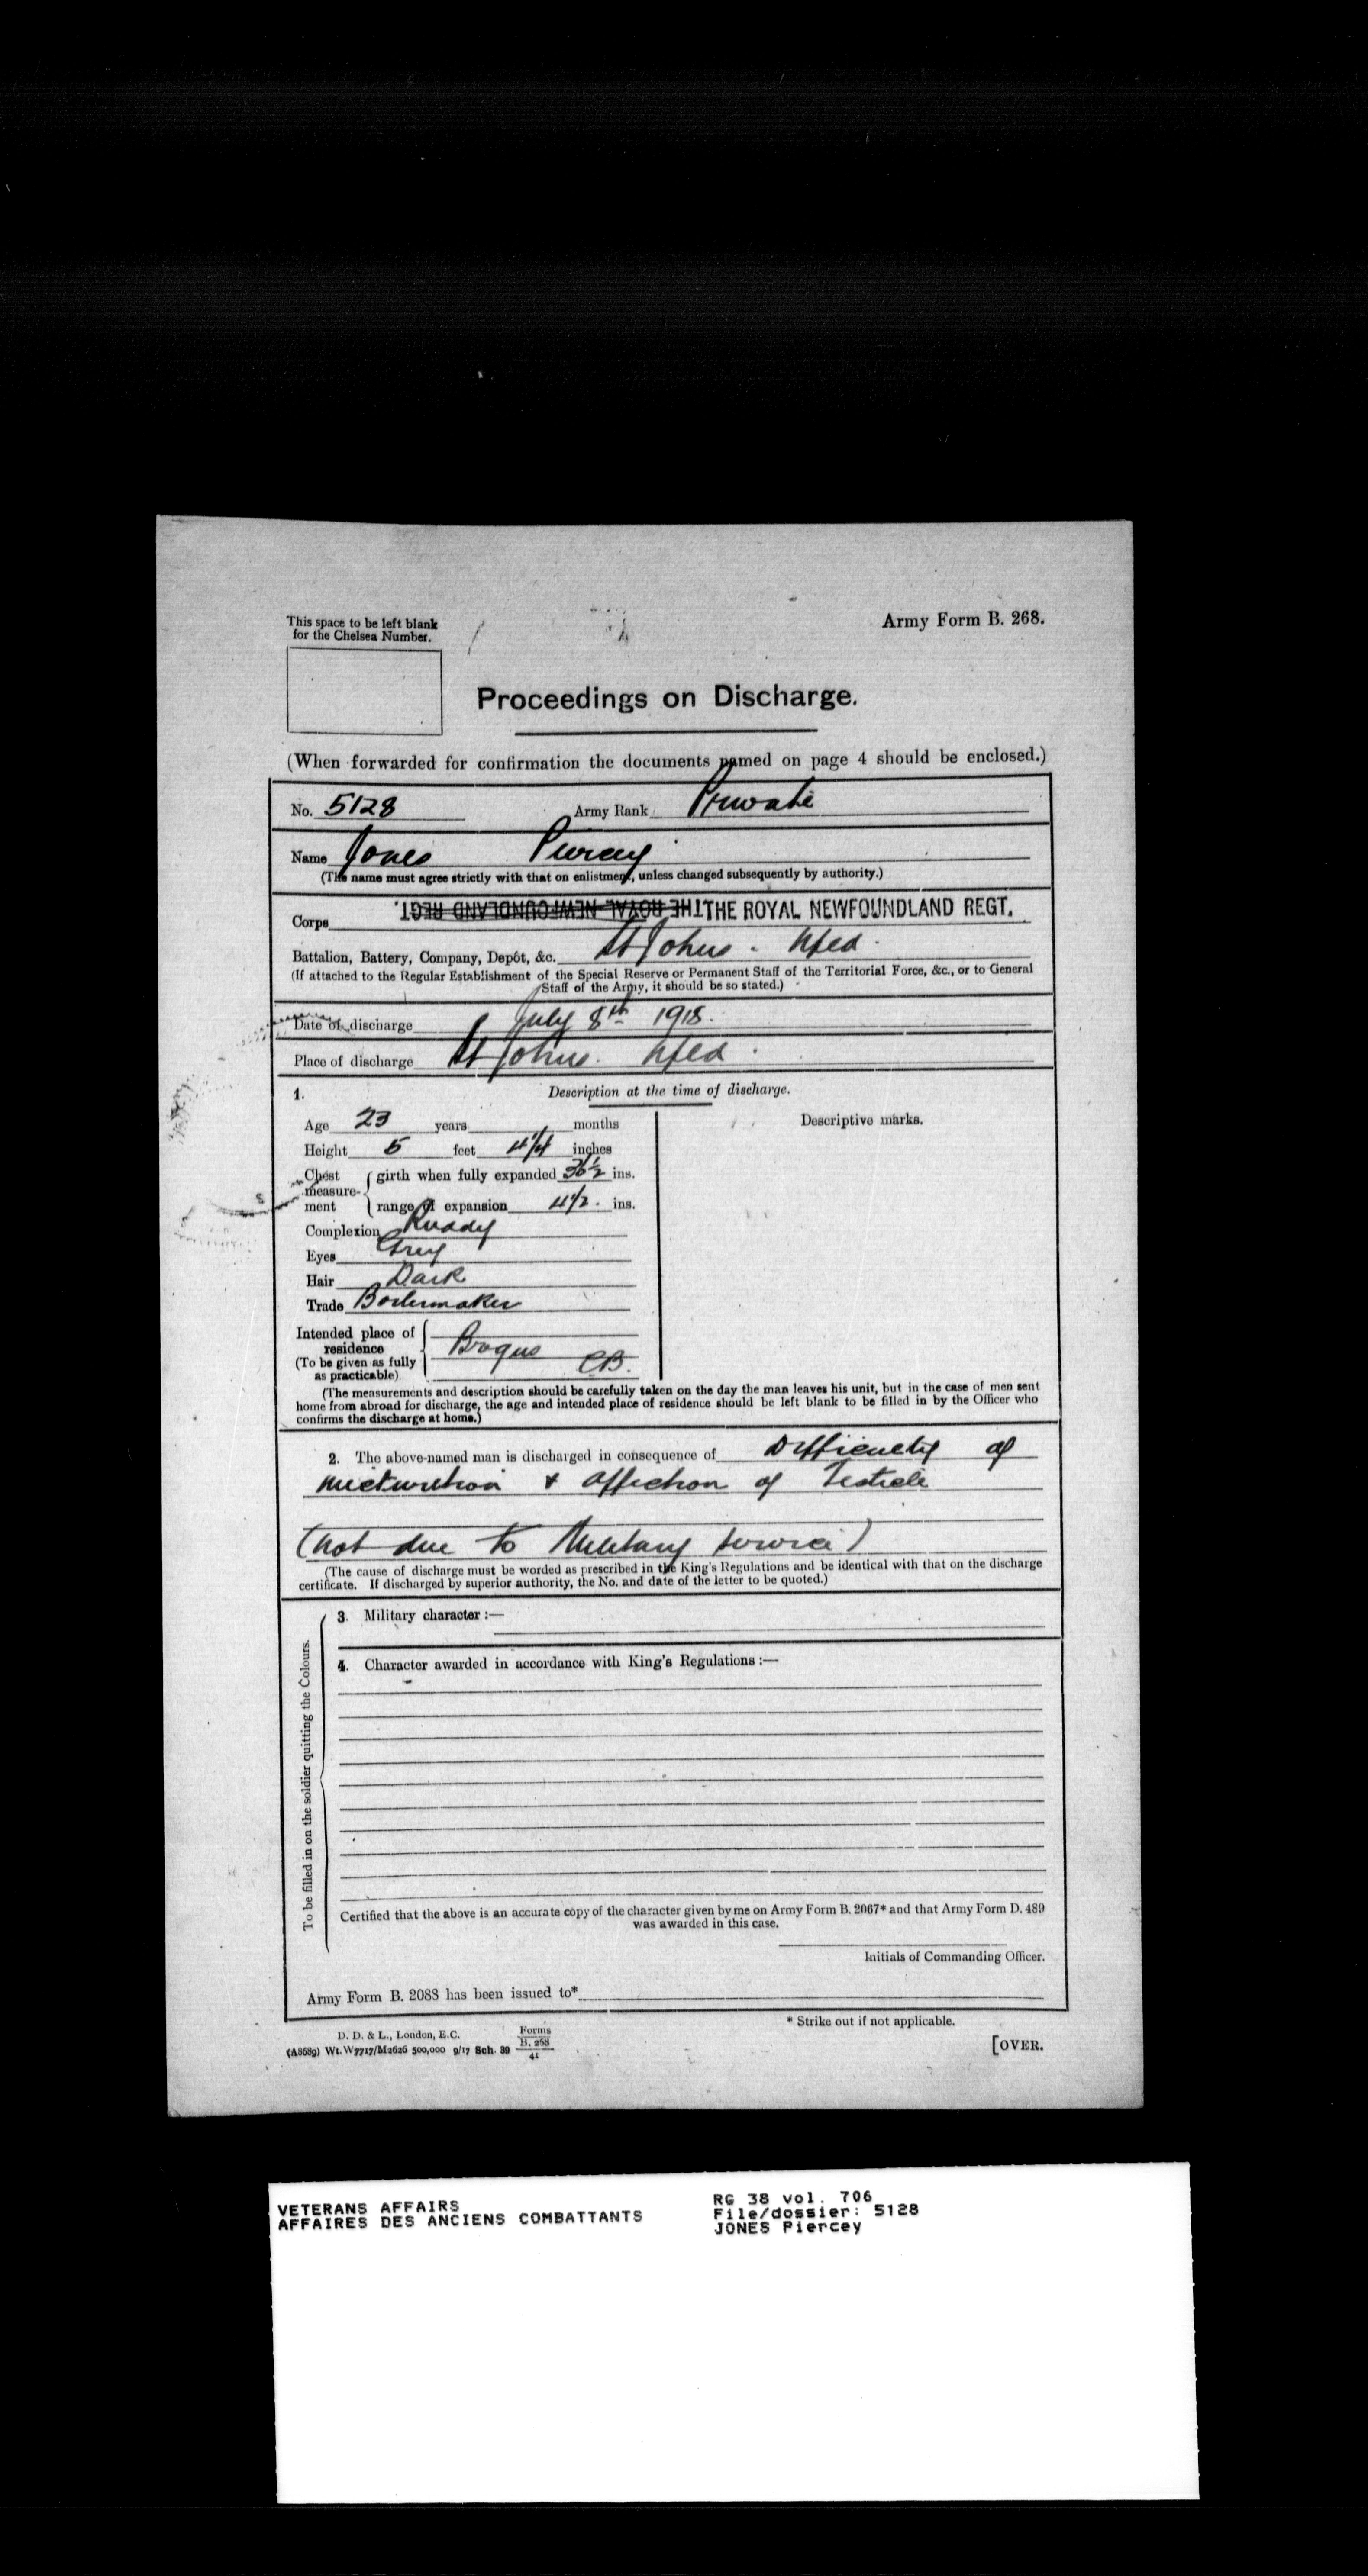 This space to be left blank
for the Chelsea Number.
Army Form B. 268.
Proceedings on Discharge.
(When forwarded for confirmation the documents named on page 4 should be enclosed.)
No. 5128 Army Rank Private
Name Jones Piercey
(The name must agree strictly with that on enlistment, unless changed subsequently by authority.)
Corps THE ROYAL NEWFOUNDLAND REGT. THE ROYAL NEWFOUNDLAND REGT.
Battalion, Battery, Company, Depôt, &c. St Johns - Nfld.
(If attached to the Regular Establishment of the Special Reserve or Permanent Staff of the Territorial Force, &c., or to General
Staff of the Army, it should be so stated.)
Date of discharge July 8th 1918.
Place of discharge St Johns. Nfld.
1. Description at the time of discharge.
Age 23 years months
Descriptive marks.
Height 5 feet 4 1/4 inches
Chest measurement girth when fully expanded 36 1/2 ins.
range of expansion 4 1/2 ins.
Complexion Ruddy
Eyes Grey
Hair Dark
Trade Boilermaker
Intended place of
residence
(To be given as fully
as practicable)
Brigus
CB.
(The measurements and description should be carefully taken on the day the man leaves his unit, but in the case of men sent
home from abroad for discharge, the age and intended place of residence should be left blank to be filled in by the Officer who
confirms the discharge at home.)
2. The above-named man is discharged in consequence of Difficulty of
micturition & affection of Testicle
(not due to Military service)
(The cause of discharge must be worded as prescribed in the King's Regulations and be identical with that on the discharge
certificate. If discharged by superior authority, the No. and date of the letter to be quoted.)
To be filled in on the soldier quitting the Colours.
3. Military character :—
4. Character awarded in accordance with King's Regulations :—
Certified that the above is an accurate copy of the character given by me on Army Form B. 2067* and that Army Form D. 489
was awarded in this case.
Initials of Commanding Officer.
Army Form B. 2088 has been issued to*
* Strike out if not applicable.
D. D. & L., London, E.C.
(A8689) Wt. W7717/M2626 500,000 9/17 Sch. 39
Forms
B. 268
41
[OVER.
VETERANS AFFAIRS
AFFAIRES DES ANCIENS COMBATTANTS
RG 38 vol. 706
File/dossier: 5128
JONES Piercey